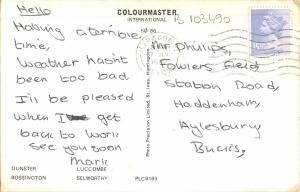 COLOURMASTER
INTERNATIONAL
15 103490
Hello
Having a terrible
time,
Weather hasn't
been too bad
I'll be pleased
when I get
back to work
see you soon
Mark
Mr Phillips,
Fowlers Field,
Station Road,
Haddenham,
Aylesbury
Bucks,
Press Precision Limited, St. Ives, Huntingdon
DUNSTER LUCCOMBE
BOSSINGTON SELWORTHY PLC9163